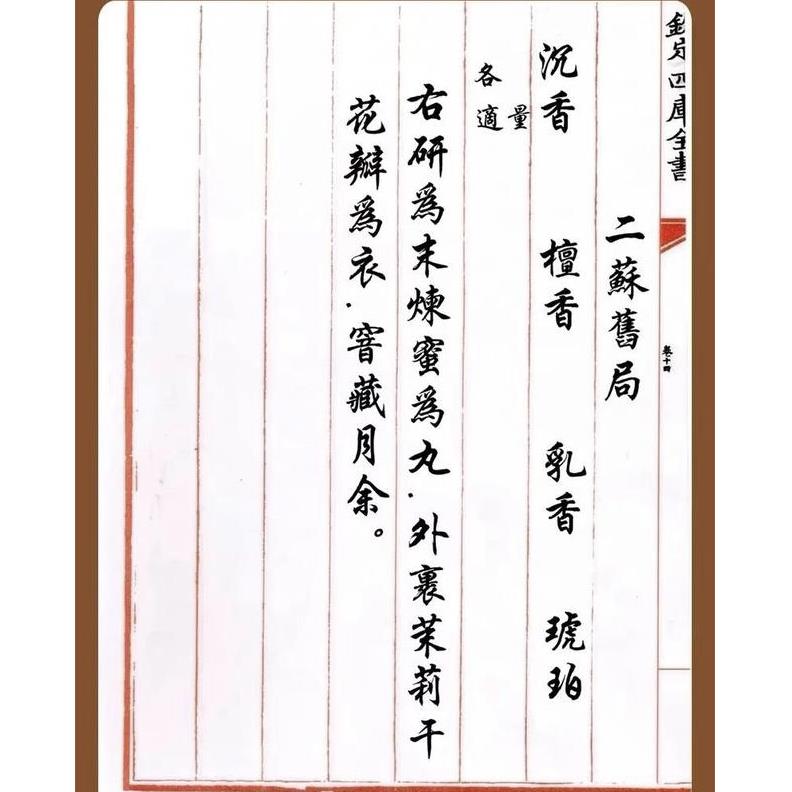 欽定四庫全書
卷十四
二蘇舊局
沉香 檀香 乳香 琥珀
各適量
右研為末煉蜜為丸.外裹茉莉干
花瓣為衣.窖藏月余。